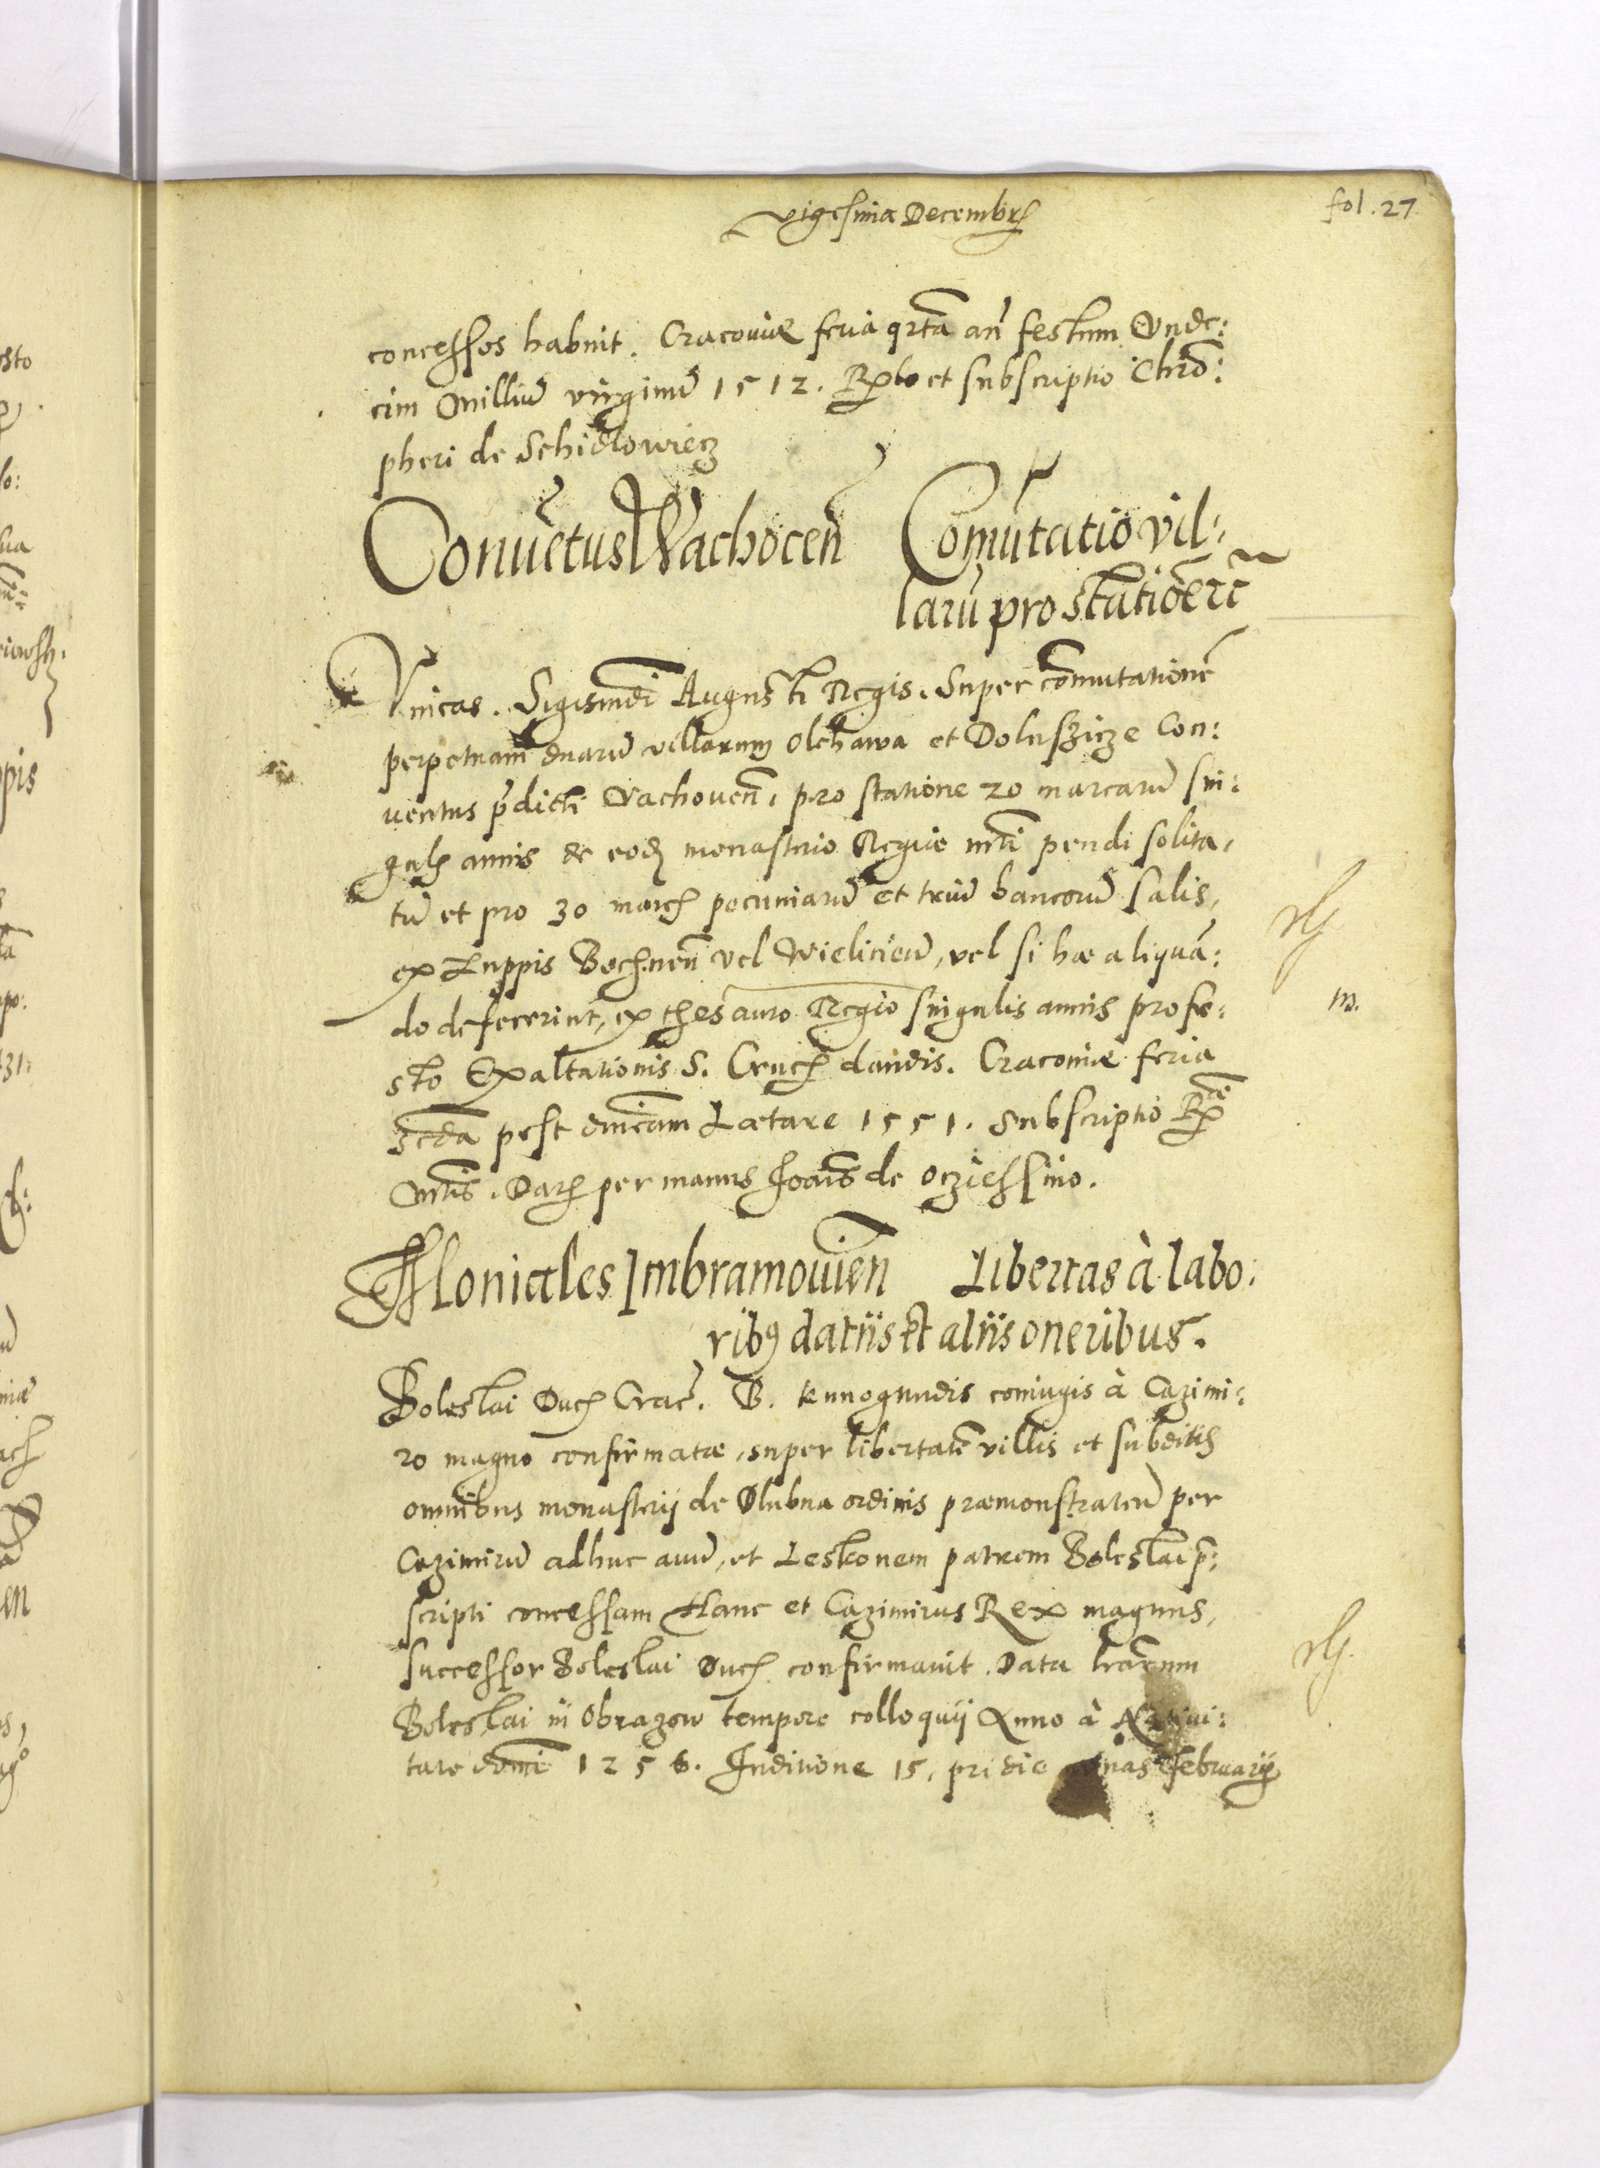 vigesima Decembr
fol. 27
concessos habuit. Cracoviæ feria qrta an festum Unde:
cim Milliū virginū 1512. Rptio et subscriptio Chrō:
pheri de Schidlowiecz
Convētus Wachocen̄ Com̄utatio vil:
larū pro statiōe etc
Unicas. Sigismūdi Augusti Regis. Super com̄utationē
perpetuam duarū villarum Olchawa et Doluszicze Con:
ventus p̄dicti Vachocen̄. pro statione 20 marcarū sin:
gulis annis de eodem monasterio Regiæ mti pendi solita,
tū et pro 30 marcis pecuniarū et triū bancorū salis,
ex Zuppis Bochnen̄ vel Wielicien̄, vel si hæ aliquā:
do defecerint, ex thesauro Regio singulis annis pro fe:
sto Exaltationis S. Crucis dandis. Cracoviæ feria
m.
scda post dnicam Lætare 1551. Subscriptio Rx
Mtis. Datis per manus Joanis de Oczieszino.
Moniales Imbramovien̄ Libertas à labo:
rib9 datiis et aliis oneribus.
Boleslai Ducis Crac. B. Kunogundis coniugis à Cazimi:
ro magno confirmatæ, super libertatē villis et subditis
omnibus monasterij de Dlubna ordinis præmonstraten̄ per
Cazimirū adhuc avū, et Leskonem patrem Boleslai p̄:
scripti concessam Hanc et Cazimirus Rex magnus,
successor Boleslai Ducis confirmavit. Data lrarum
Boleslai in Obrazow tempore colloquij Anno à Nativi:
tate domi 1256. Inditione 15, pridie nonas februarij